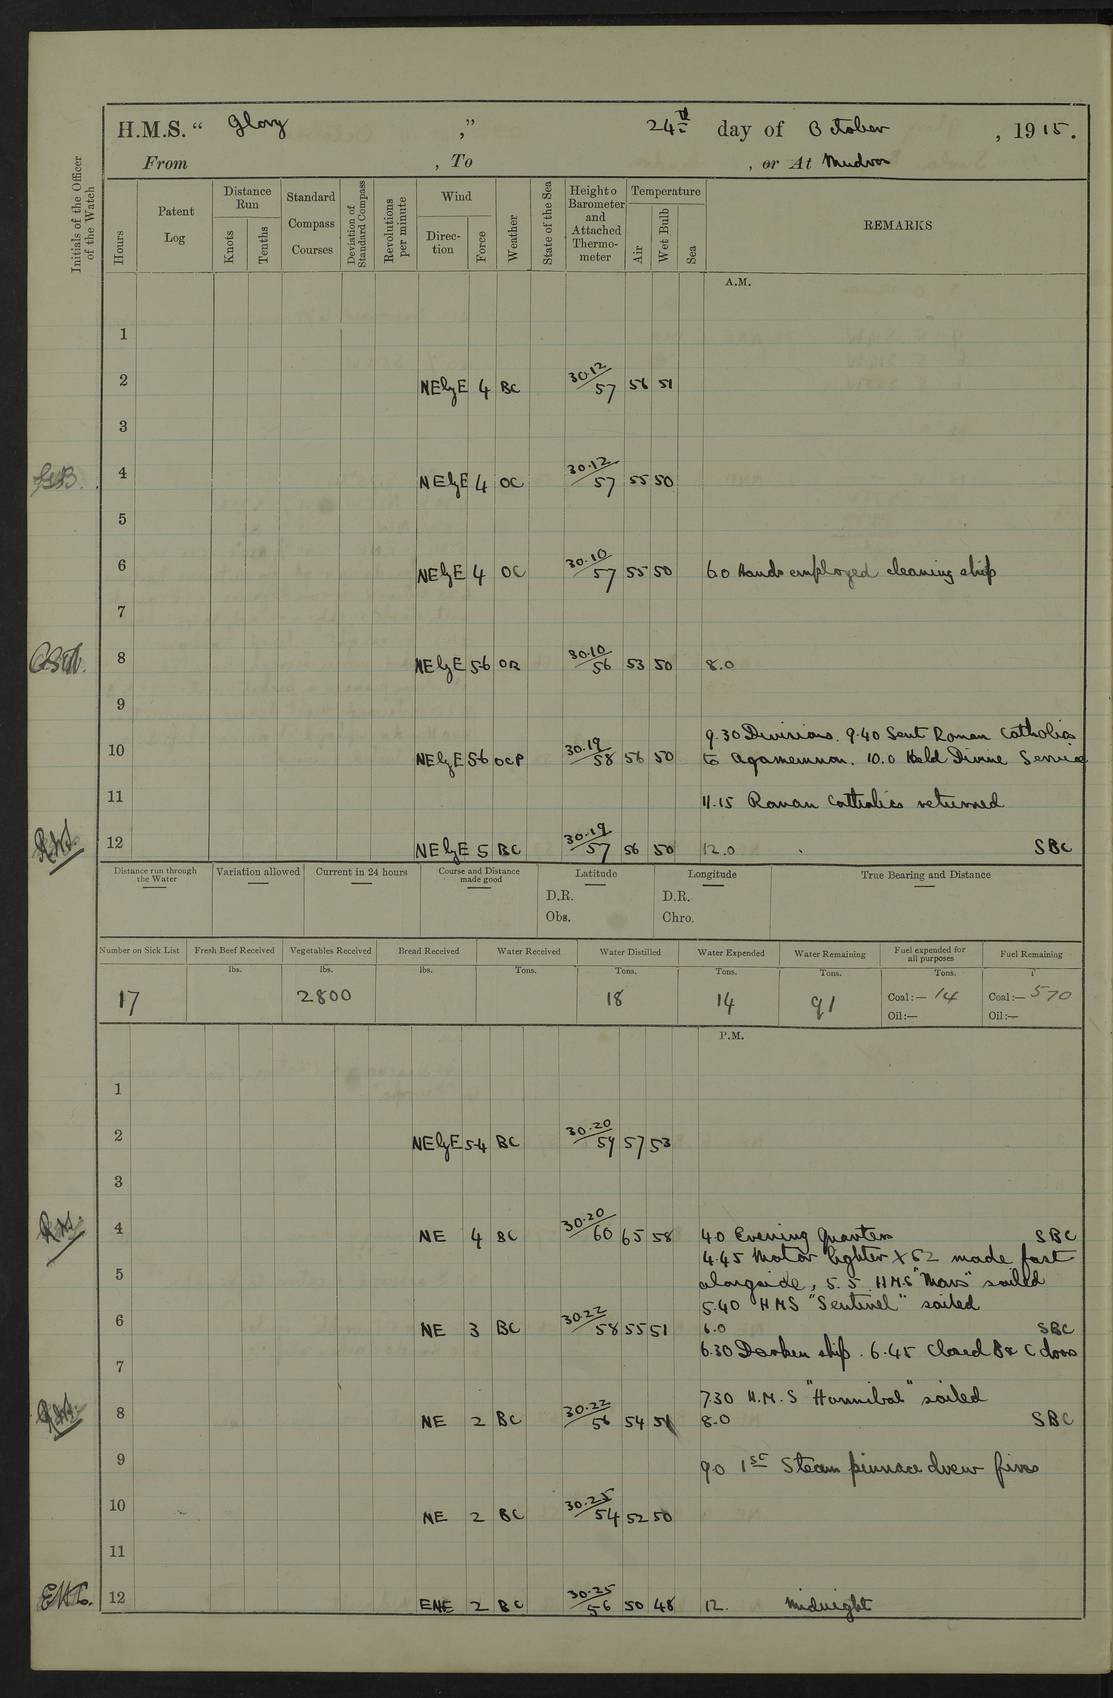 H.M.S. “ Glory ,” 24th day of October , 1915.
From , To , or At Mudros
Initials of the Officer of the Watch
Hours
Patent Log
Distance Run
Knots
Tenths
Standard Compass Courses
Deviation of Standard Compass
Revolutions per minute
Wind
Direction
Force
Weather
State of the Sea
Height o Barometer and Attached Thermometer
Temperature
Air
Wet Bulb
Sea
REMARKS
A.M.
1
2 NEbyE 4 BC 30.12/57 56 51
3
4 NEbyE 4 OC 30.12/57 55 50
5
6 NEbyE 4 OC 30.10/57 55 50 6.0 Hands employed cleaning ship
7
8 NEbyE 5-6 OR 30.10/56 53 50 8.0
9
9.30 Divisions. 9.40 Sent Roman Catholics
10 NEbyE 5-6 OCP 30.19/58 56 50 to Agamemnon. 10.0 Held Divine Service
11 11.15 Roman Catholics returned
12 NEbyE 5 BC 30.19/57 56 50 12.0 SBC
Distance run through the Water
Variation allowed
Current in 24 hours
Course and Distance made good
Latitude
D.R.
Obs.
Longitude
D.R.
Chro.
True Bearing and Distance
Number on Sick List
Fresh Beef Received
Vegetables Received
Bread Received
Water Received
Water Distilled
Water Expended
Water Remaining
Fuel expended for all purposes
Fuel Remaining
lbs. lbs. lbs. Tons. Tons. Tons. Tons. Tons. T
17 2800 18 14 91 Coal:— 14 Coal:— 570
Oil:— Oil:—
P.M.
1
2 NEbyE 5-4 BC 30.20/59 57 53
3
4 NE 4 BC 30.20/60 65 58 4.0 Evening Quarters SBC
4.45 Motor lighter X 62 made fast
5 alongside, 5.5 H.M.S "Mars" sailed
5.40 HMS "Sentinel" sailed
6 NE 3 BC 30.22/58 55 51 6.0 SBC
6.30 Darken ship. 6.45 Closed B & C doors
7
7.30 H.M.S "Hannibal" sailed
8 NE 2 BC 30.22/56 54 51 8.0 SBC
9 9.0 1st Steam pinnace drew fires
10 NE 2 BC 30.25/54 52 50
11
12 ENE 2 BC 30.25/56 50 48 12. Midnight